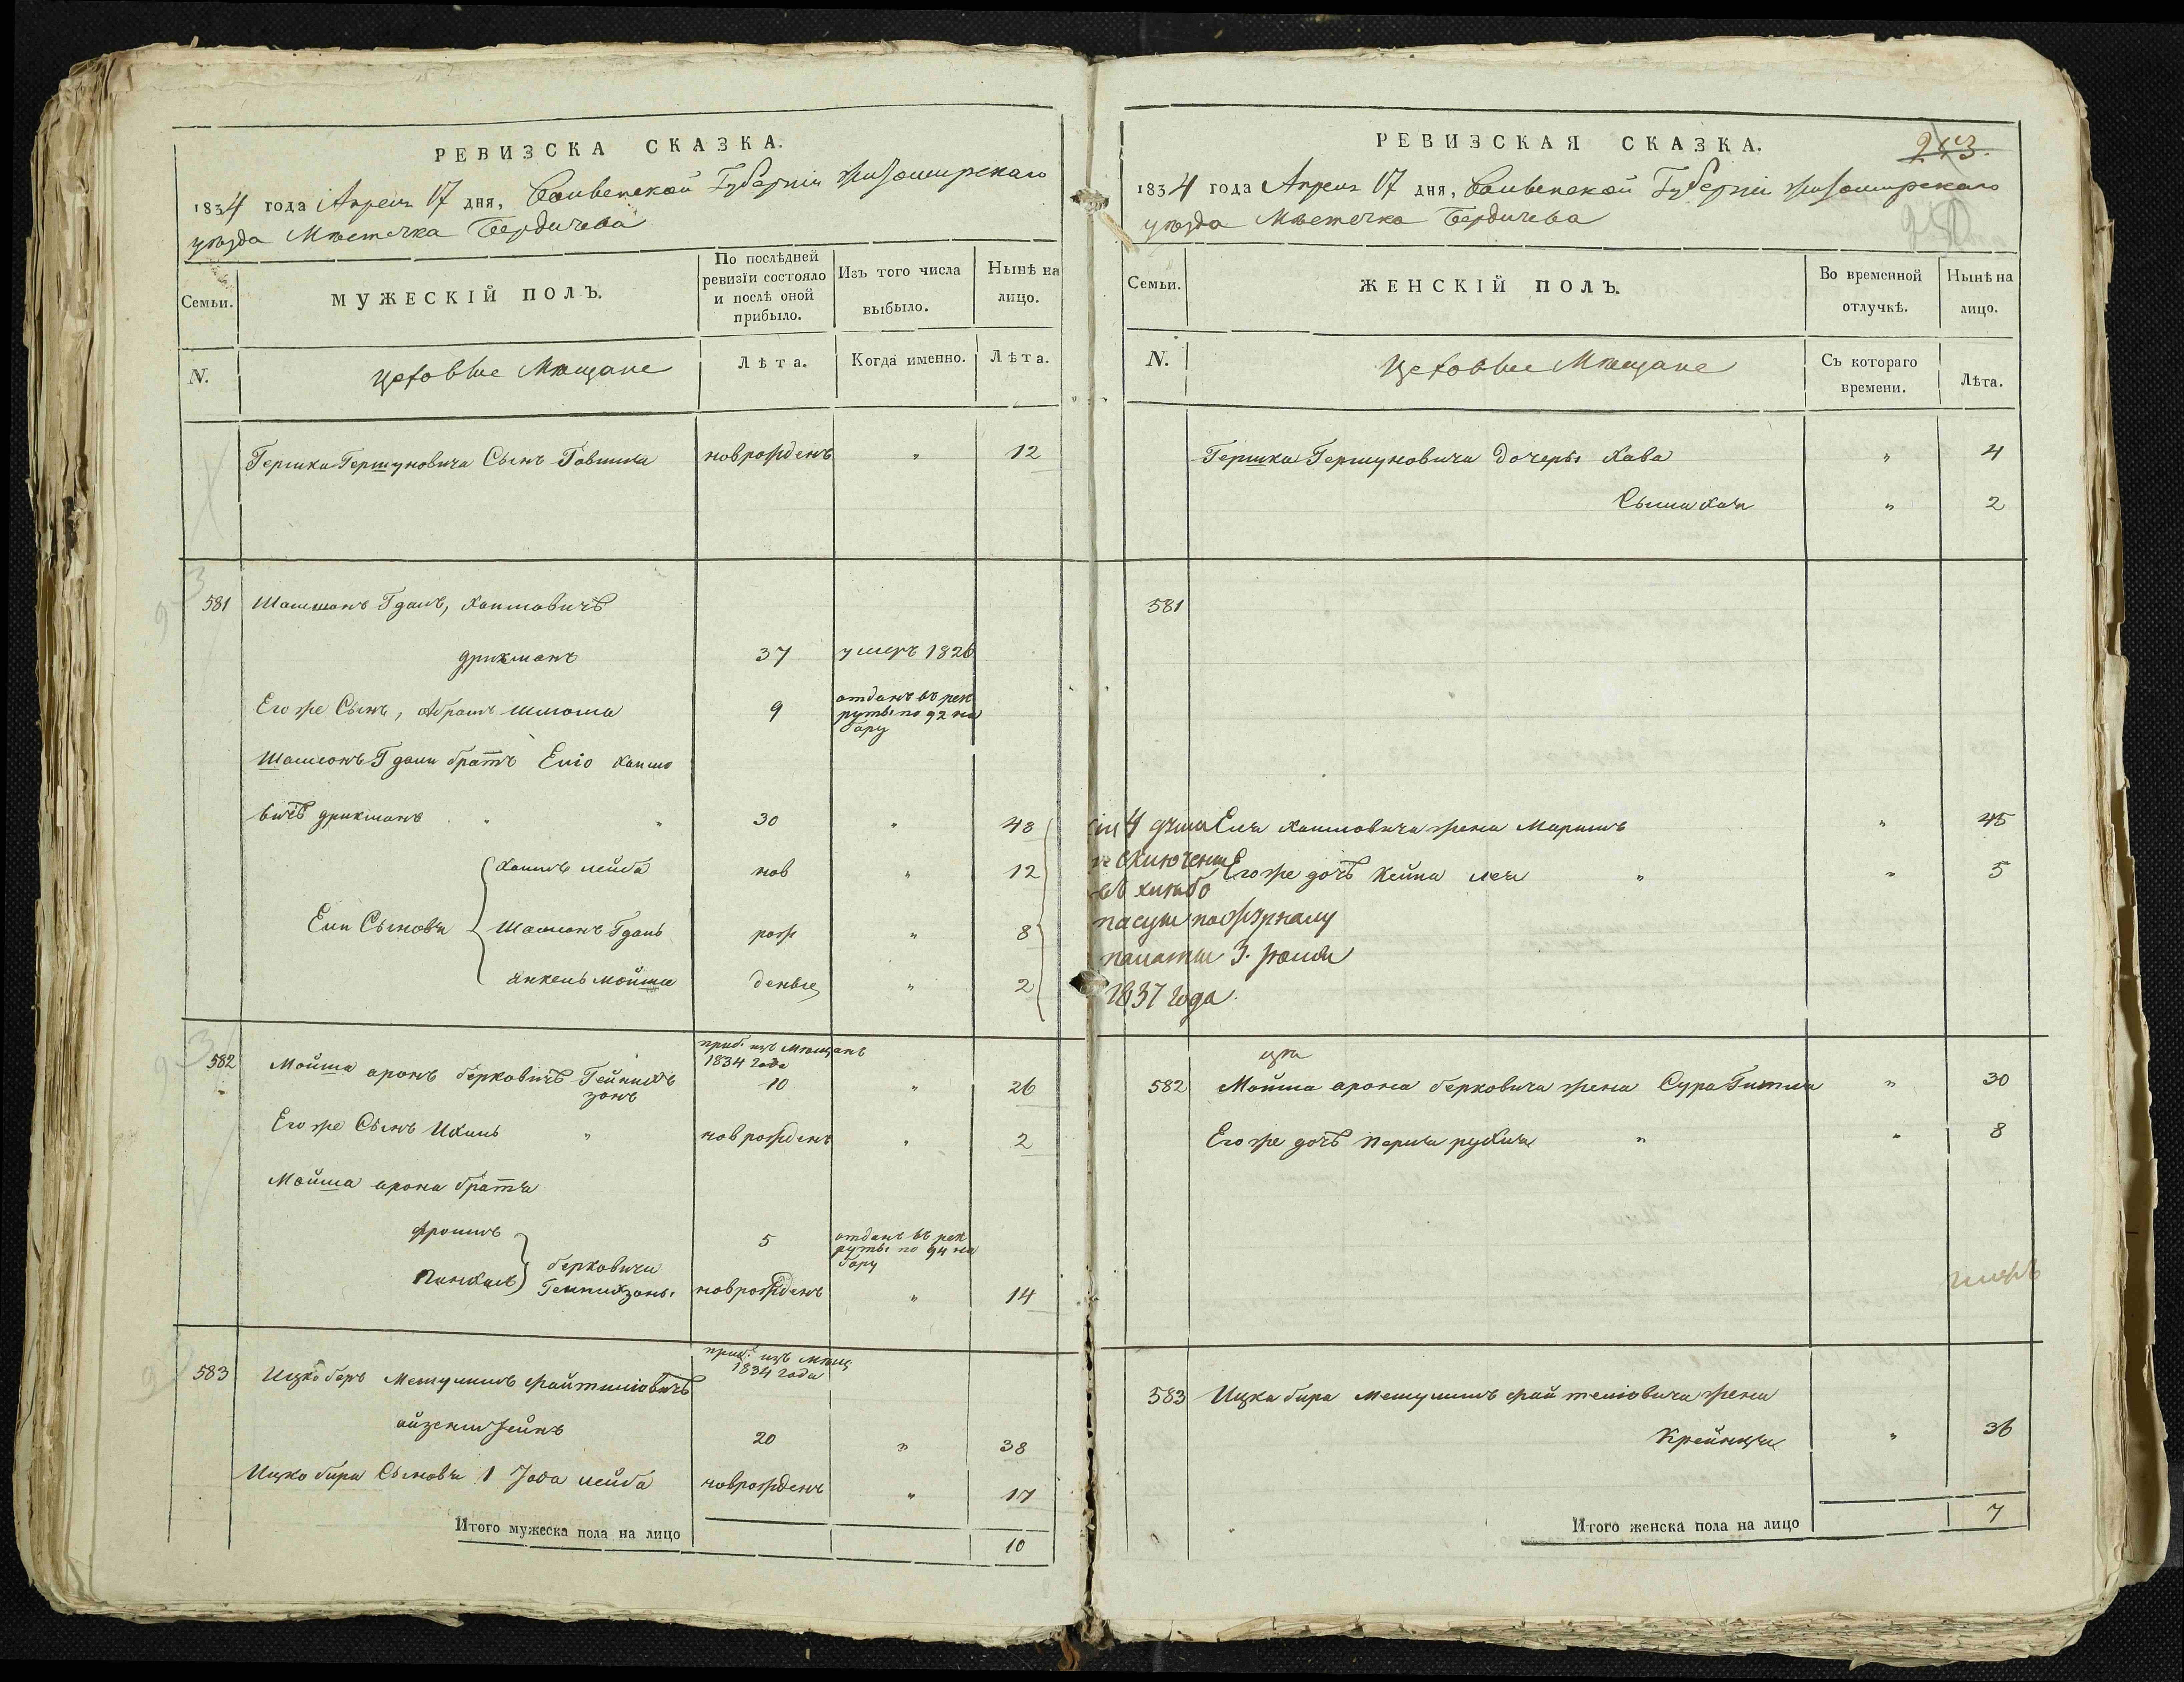 РЕВИЗСКА СКАЗКА.
1834 года Апреля 17 дня, Волынской Губерніи Житомирскаго
уѣзда Мѣстечка Бердичева
Семьи.
МУЖЕСКІЙ ПОЛЪ.
По послѣдней ревизіи состояло и послѣ оной прибыло.
Изъ того числа выбыло.
Нынѣ на лицо.
N.
Цеховые Мѣщане
Лѣта.
Когда именно.
Лѣта.
Гершка Гершуновича Сынъ новрожденъ " 12
581 Шамшонъ Гданъ, Хаимовичъ
Дрикманъ 37 умеръ 1826
Его же Сынъ, Абрамъ Шлиома 9 отданъ въ рек
руты по 92 на
бору
Шамсонъ Гдаля братъ Елiо Хаимо
вичъ Дрикманъ " " 30 " 48
Хаимъ Лейба нов " 12
Ели Сыновья Шамсонъ Гданъ рож " 8
Янкель Мойше деные " 2
582 Мойша Аронъ Берковичъ Гейнихъ
зонъ
приб. изъ Мѣщанъ
1834 года
10 " 26
Его же Сынъ Ихиль " новрожденъ " 2
Мойша Арона братья
Фроимъ 5 отданъ въ рек
руты по 94 на
бору
Пинхасъ Берковичи
Гейнихзоны новрожденъ " 14
583 Ицко Беръ Мешулимъ Файтишовичъ
приб. изъ Мѣщ
1834 года
Айзенштейнъ 20 " 38
Ицко Бера Сыновья 1 Іова Лейба новрожденъ " 17
Итого мужеска пола на лицо 10
РЕВИЗСКАЯ СКАЗКА.
243.
1834 года Апреля 17 дня, Волынской Губерніи Житомирскаго
уѣзда Мѣстечка Бердичева
Семьи.
ЖЕНСКІЙ ПОЛЪ.
Во временной отлучкѣ.
Нынѣ на лицо.
N.
Цеховые Мѣщане
Съ котораго времени.
Лѣта.
Гершка Гершуновича дочеры Хава " 4
Сыма Хая " 2
581
4 душа Еля Хаимовича жена Маримъ " 45
исключены Его же дочь Кейла Лея " " 5
по журналу
палаты 3.
1837 года.
582 Мойша Арона Берковича жена Сура Гитля " 30
Его же дочь Перля Рухля " " 8
583 Ицка Бера Мешулимъ Файтелiовича жена
Крейнця " 36
Итого женска пола на лицо 7